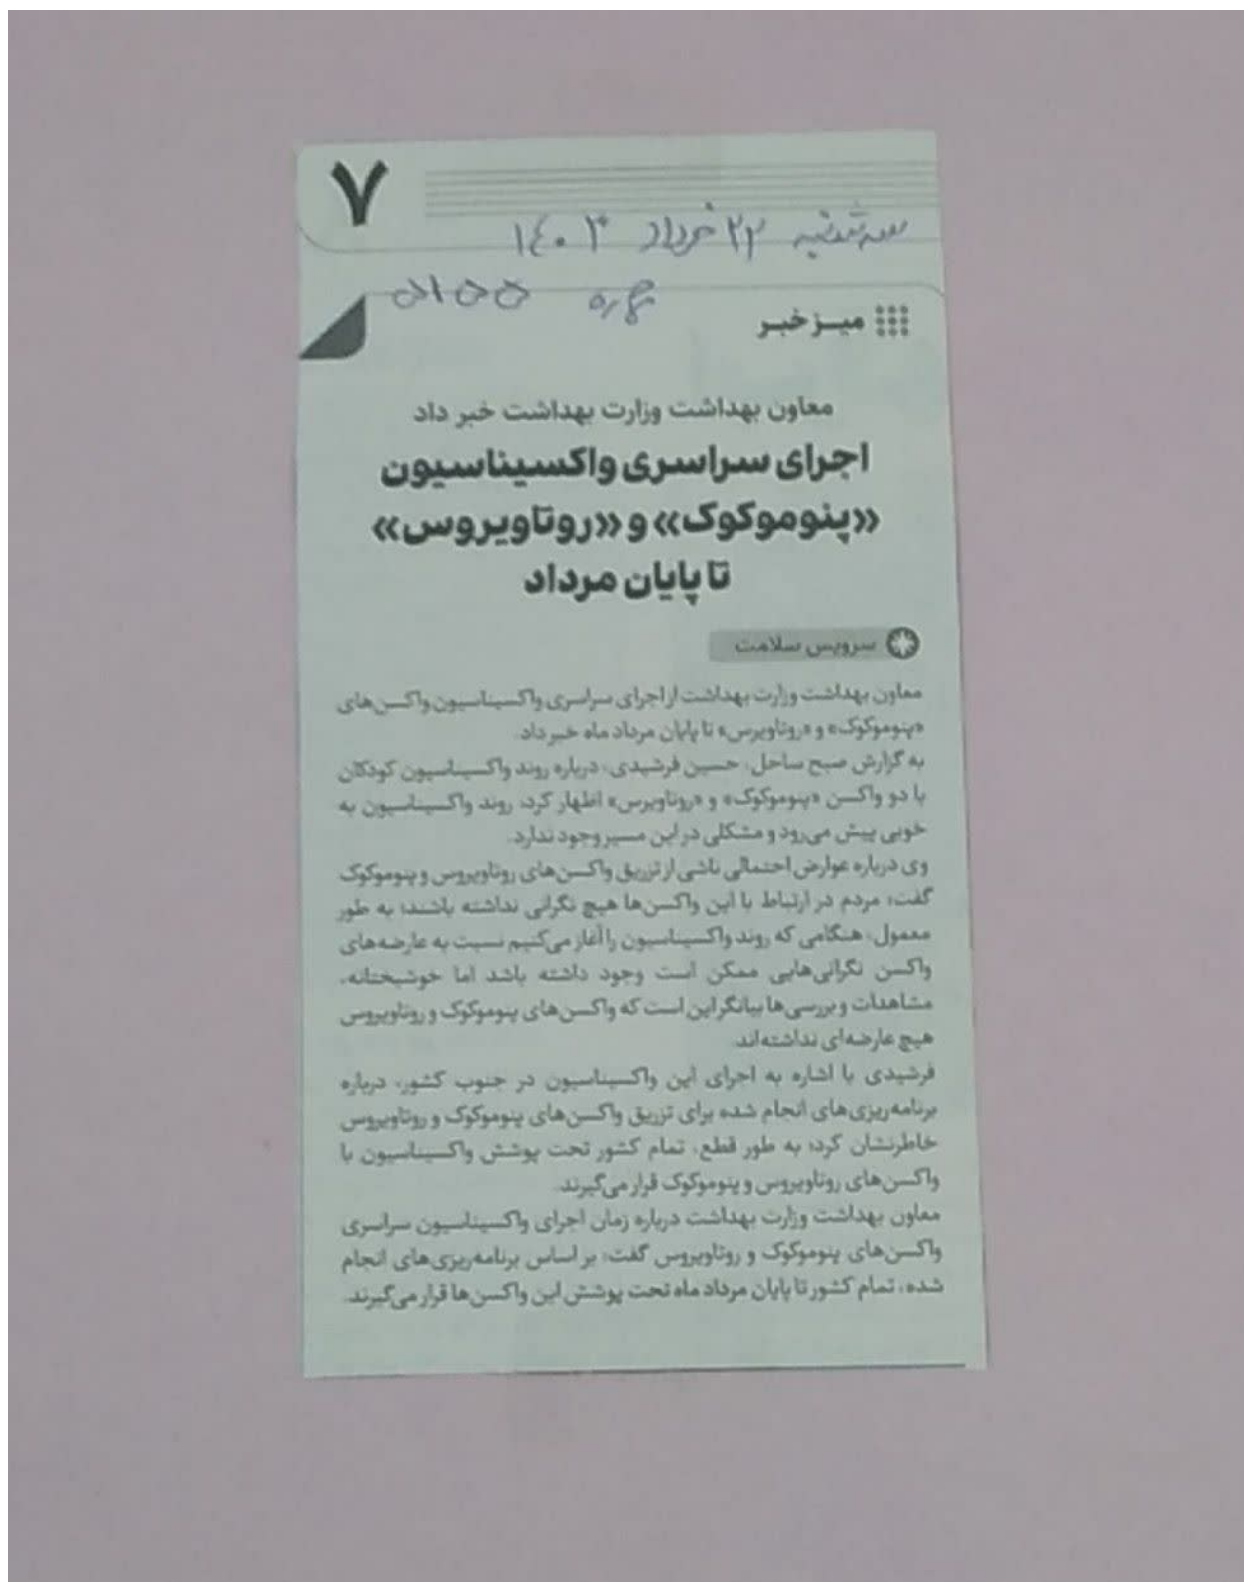 ۷
سه شنبه ۲۲ خرداد ۱۴۰۳
۵۱۵۵
میز خبر
معاون بهداشت وزارت بهداشت خبر داد
اجرای سراسری واکسیناسیون
«پنوموکوک» و «روتاویروس»
تا پایان مرداد
سرویس سلامت
معاون بهداشت وزارت بهداشت از اجرای سراسری واکسیناسیون واکسن‌های
«پنوموکوک» و «روتاویرس» تا پایان مرداد ماه خبر داد.
به گزارش صبح ساحل، حسین فرشیدی، درباره روند واکسیناسیون کودکان
با دو واکسن «پنوموکوک» و «روتاویرس» اظهار کرد: روند واکسیناسیون به
خوبی پیش می‌رود و مشکلی در این مسیر وجود ندارد.
وی درباره عوارض احتمالی ناشی از تزریق واکسن‌های روتاویروس و پنوموکوک
گفت: مردم در ارتباط با این واکسن‌ها هیچ نگرانی نداشته باشند؛ به طور
معمول، هنگامی که روند واکسیناسیون را آغاز می‌کنیم نسبت به عارضه‌های
واکسن نگرانی‌هایی ممکن است وجود داشته باشد اما خوشبختانه،
مشاهدات و بررسی‌ها بیانگر این است که واکسن‌های پنوموکوک و روتاویروس
هیچ عارضه‌ای نداشته‌اند.
فرشیدی با اشاره به اجرای این واکسیناسیون در جنوب کشور، درباره
برنامه‌ریزی‌های انجام شده برای تزریق واکسن‌های پنوموکوک و روتاویروس
خاطرنشان کرد: به طور قطع، تمام کشور تحت پوشش واکسیناسیون با
واکسن‌های روتاویروس و پنوموکوک قرار می‌گیرند.
معاون بهداشت وزارت بهداشت درباره زمان اجرای واکسیناسیون سراسری
واکسن‌های پنوموکوک و روتاویروس گفت: بر اساس برنامه‌ریزی‌های انجام
شده، تمام کشور تا پایان مرداد ماه تحت پوشش این واکسن‌ها قرار می‌گیرند.